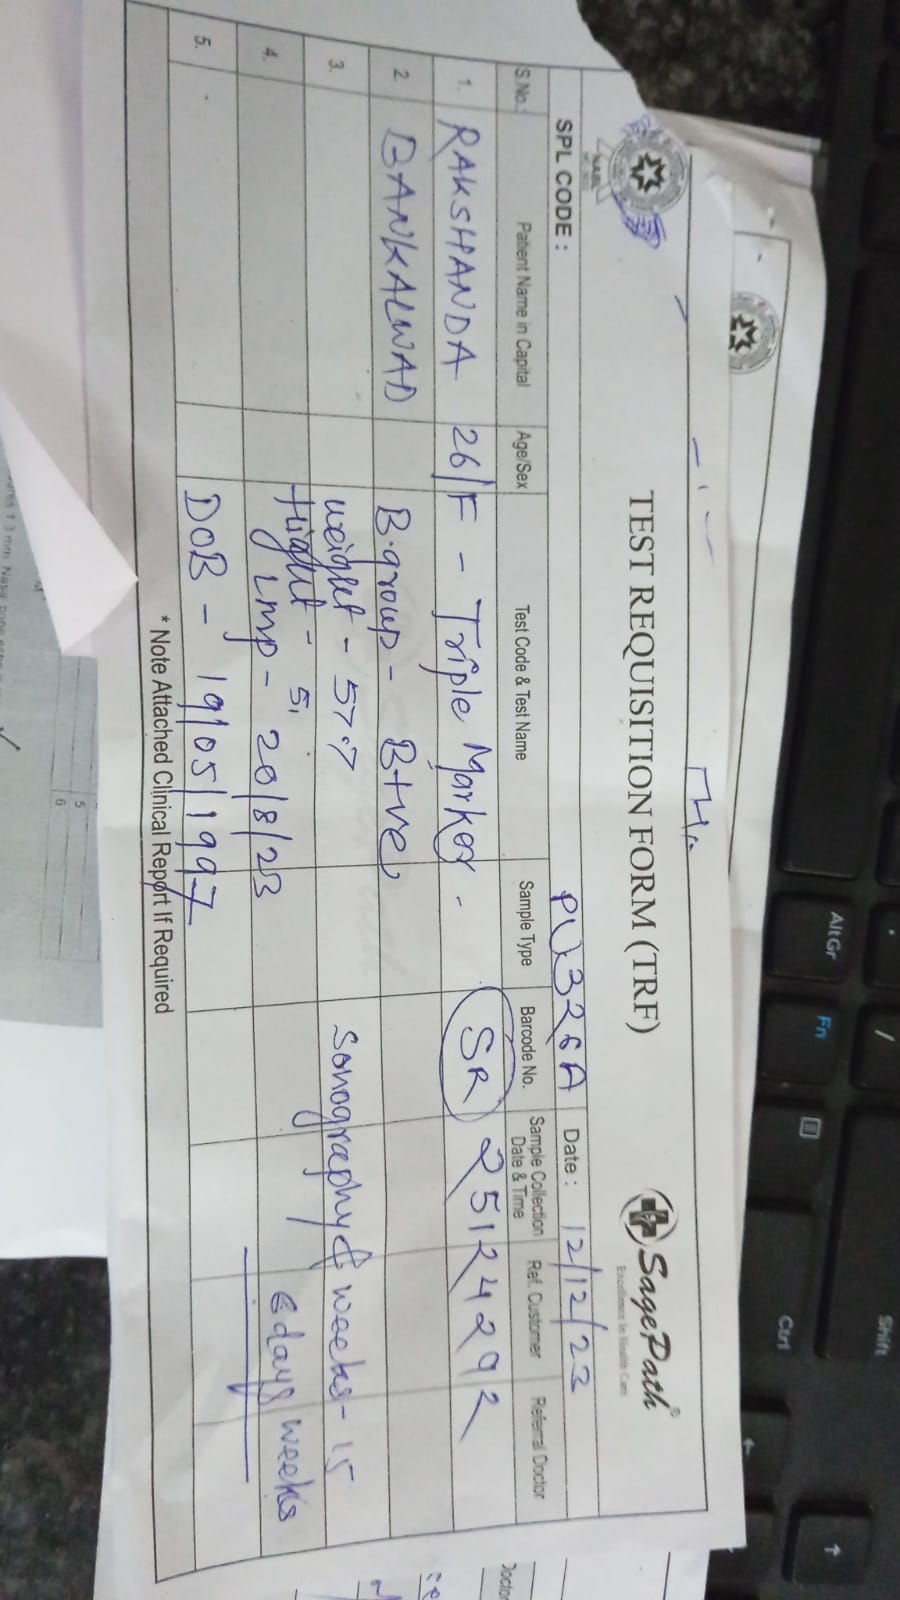 TEST REQUISITION FORM (TRF)
SagePath
Excellence In Health Care
SPL CODE : PU326A Date : 12/12/23
S.No. Patient Name in Capital Age/Sex Test Code & Test Name Sample Type Barcode No. Sample Collection Date & Time Ref. Customer Referral Doctor
1. RAKSHANDA 26/F - Triple Marker - SR 25124292
2. BANKALWAD B.group - B+ve
3. weight - 57.7 Sonography & weeks - 15
Hight - 5' 6 days weeks
4. Lmp - 20/8/23
5. DOB - 19/05/1997
* Note Attached Clinical Report If Required
Alt Gr
Fn
Ctrl
Shift
/